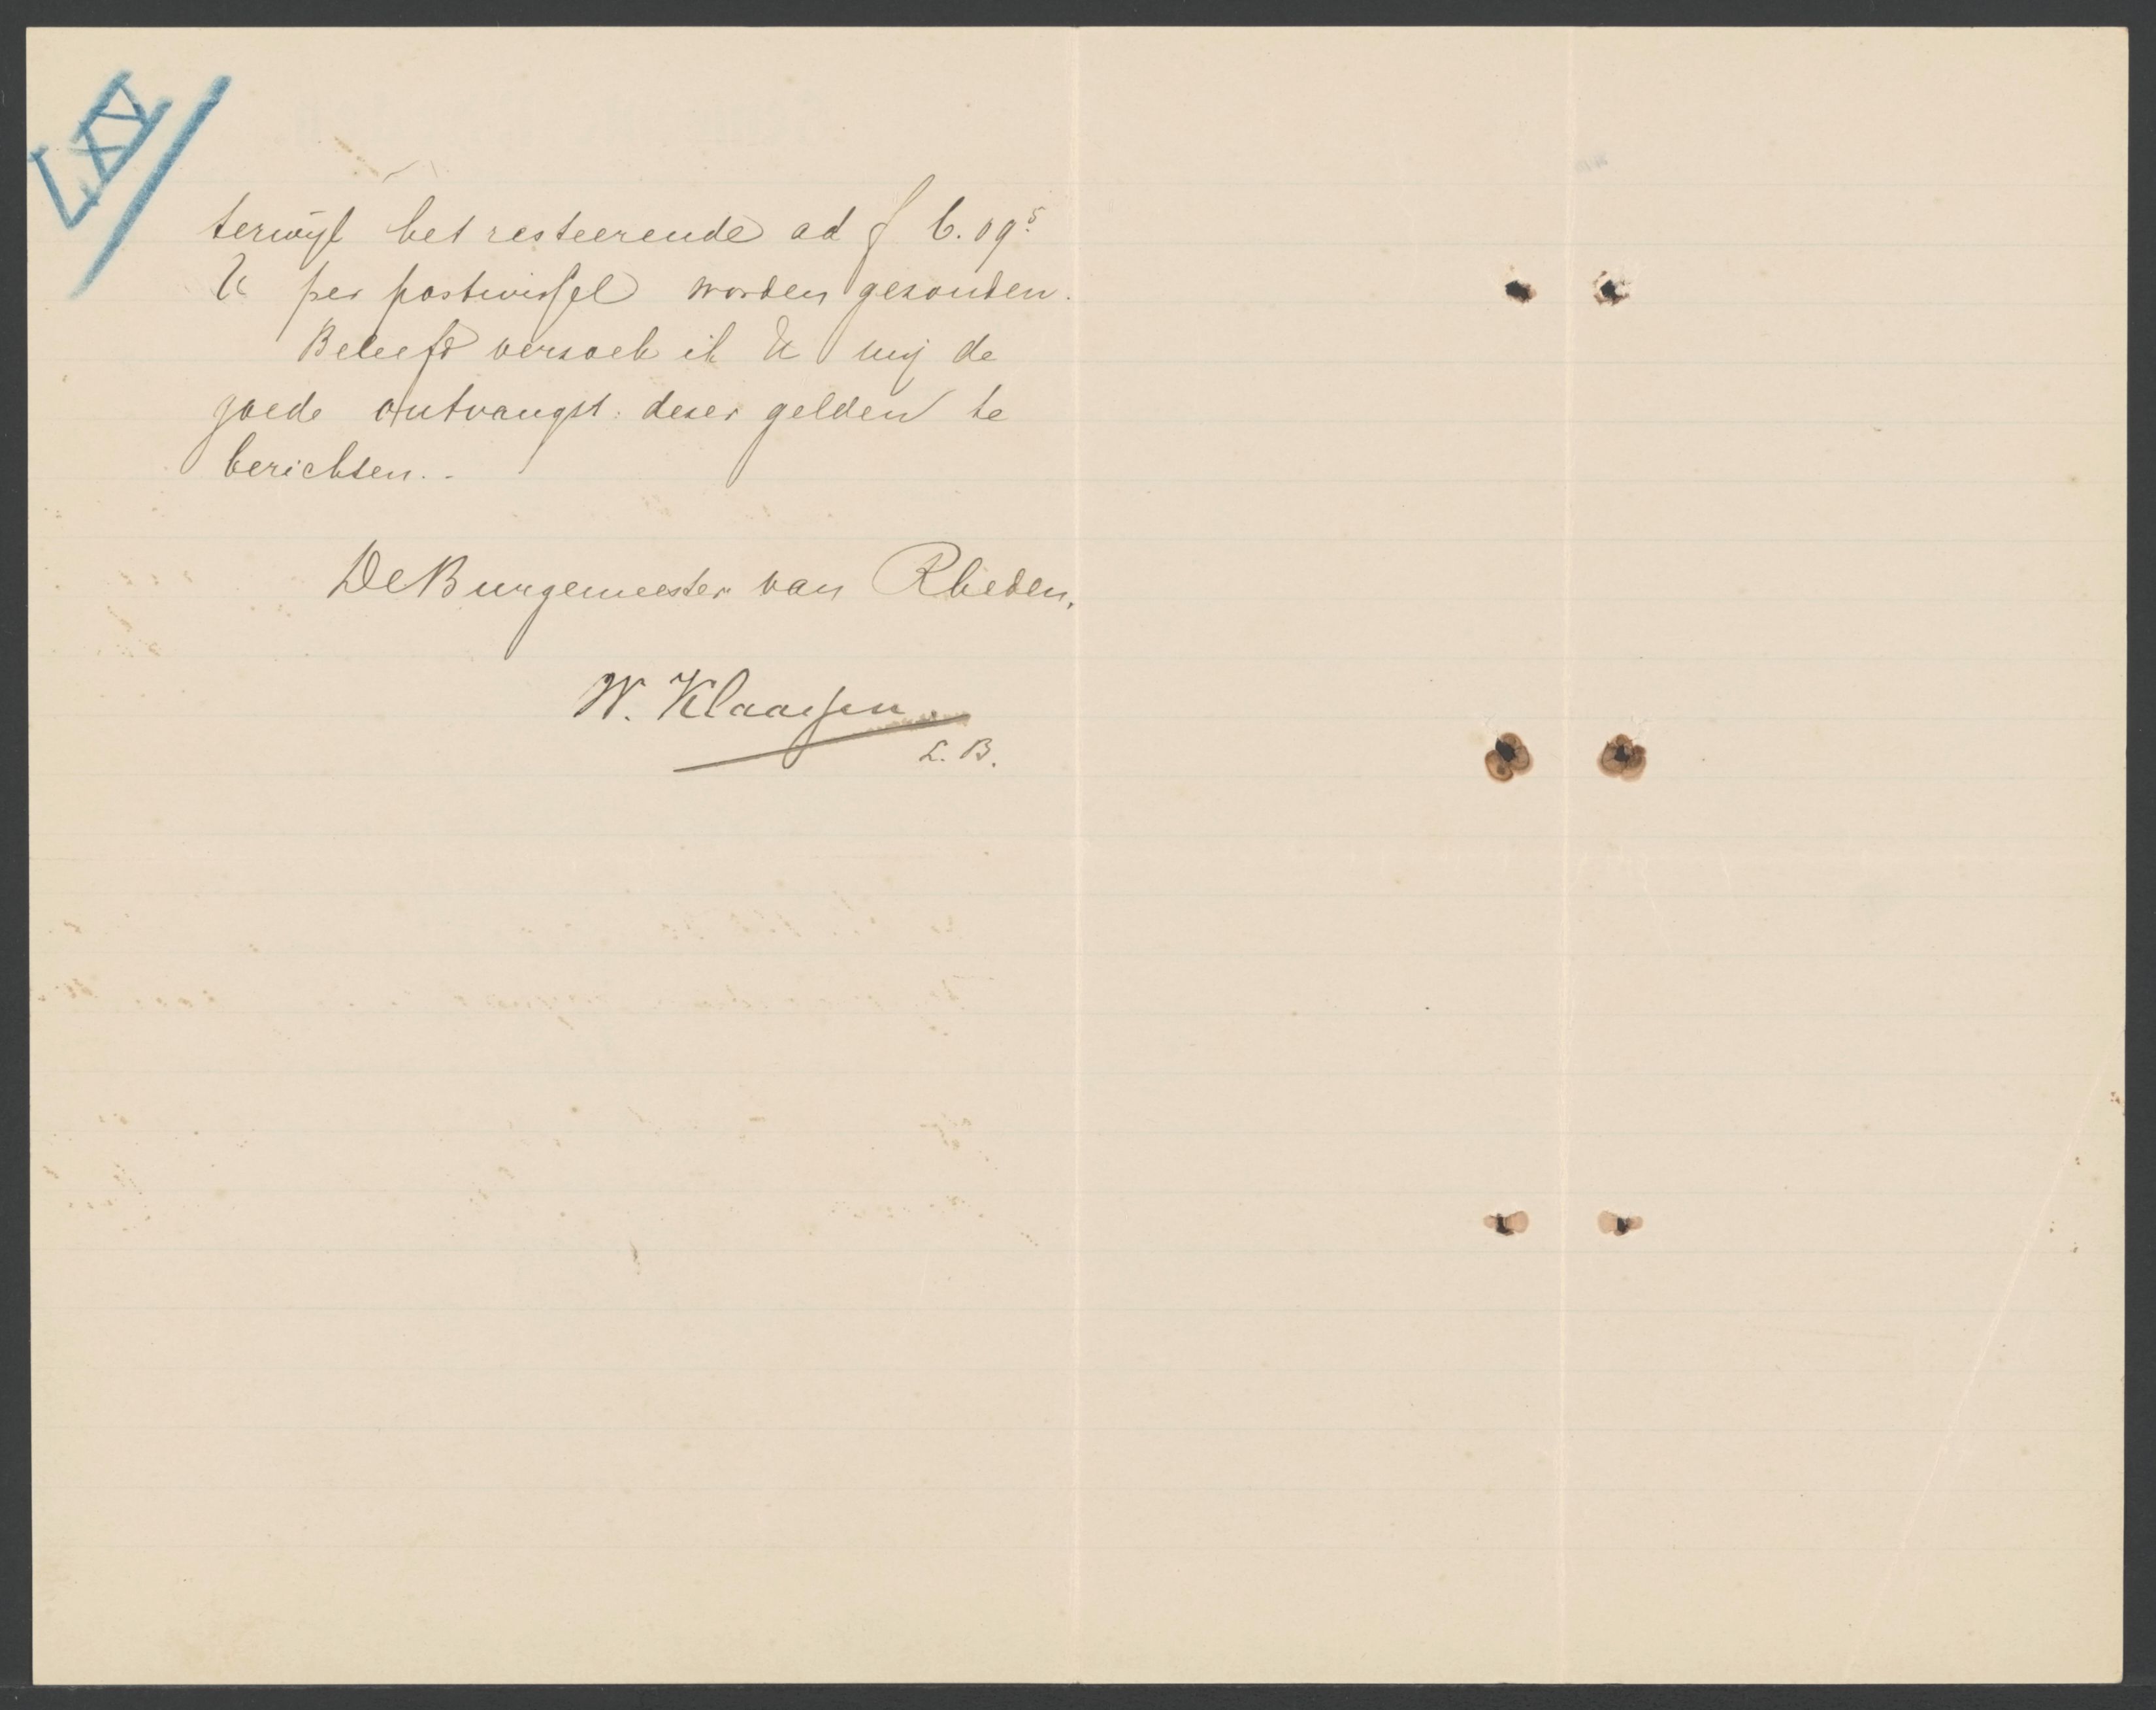 LXIV
terwijl het resteerende ad f 6.09⁵
U per postwissel worden gezonden.
Beleefd verzoek ik U mij de
goede ontvangst dezer gelden te
berichten.
De Burgemeester van Rheden,
W. Klaassen
L. B.